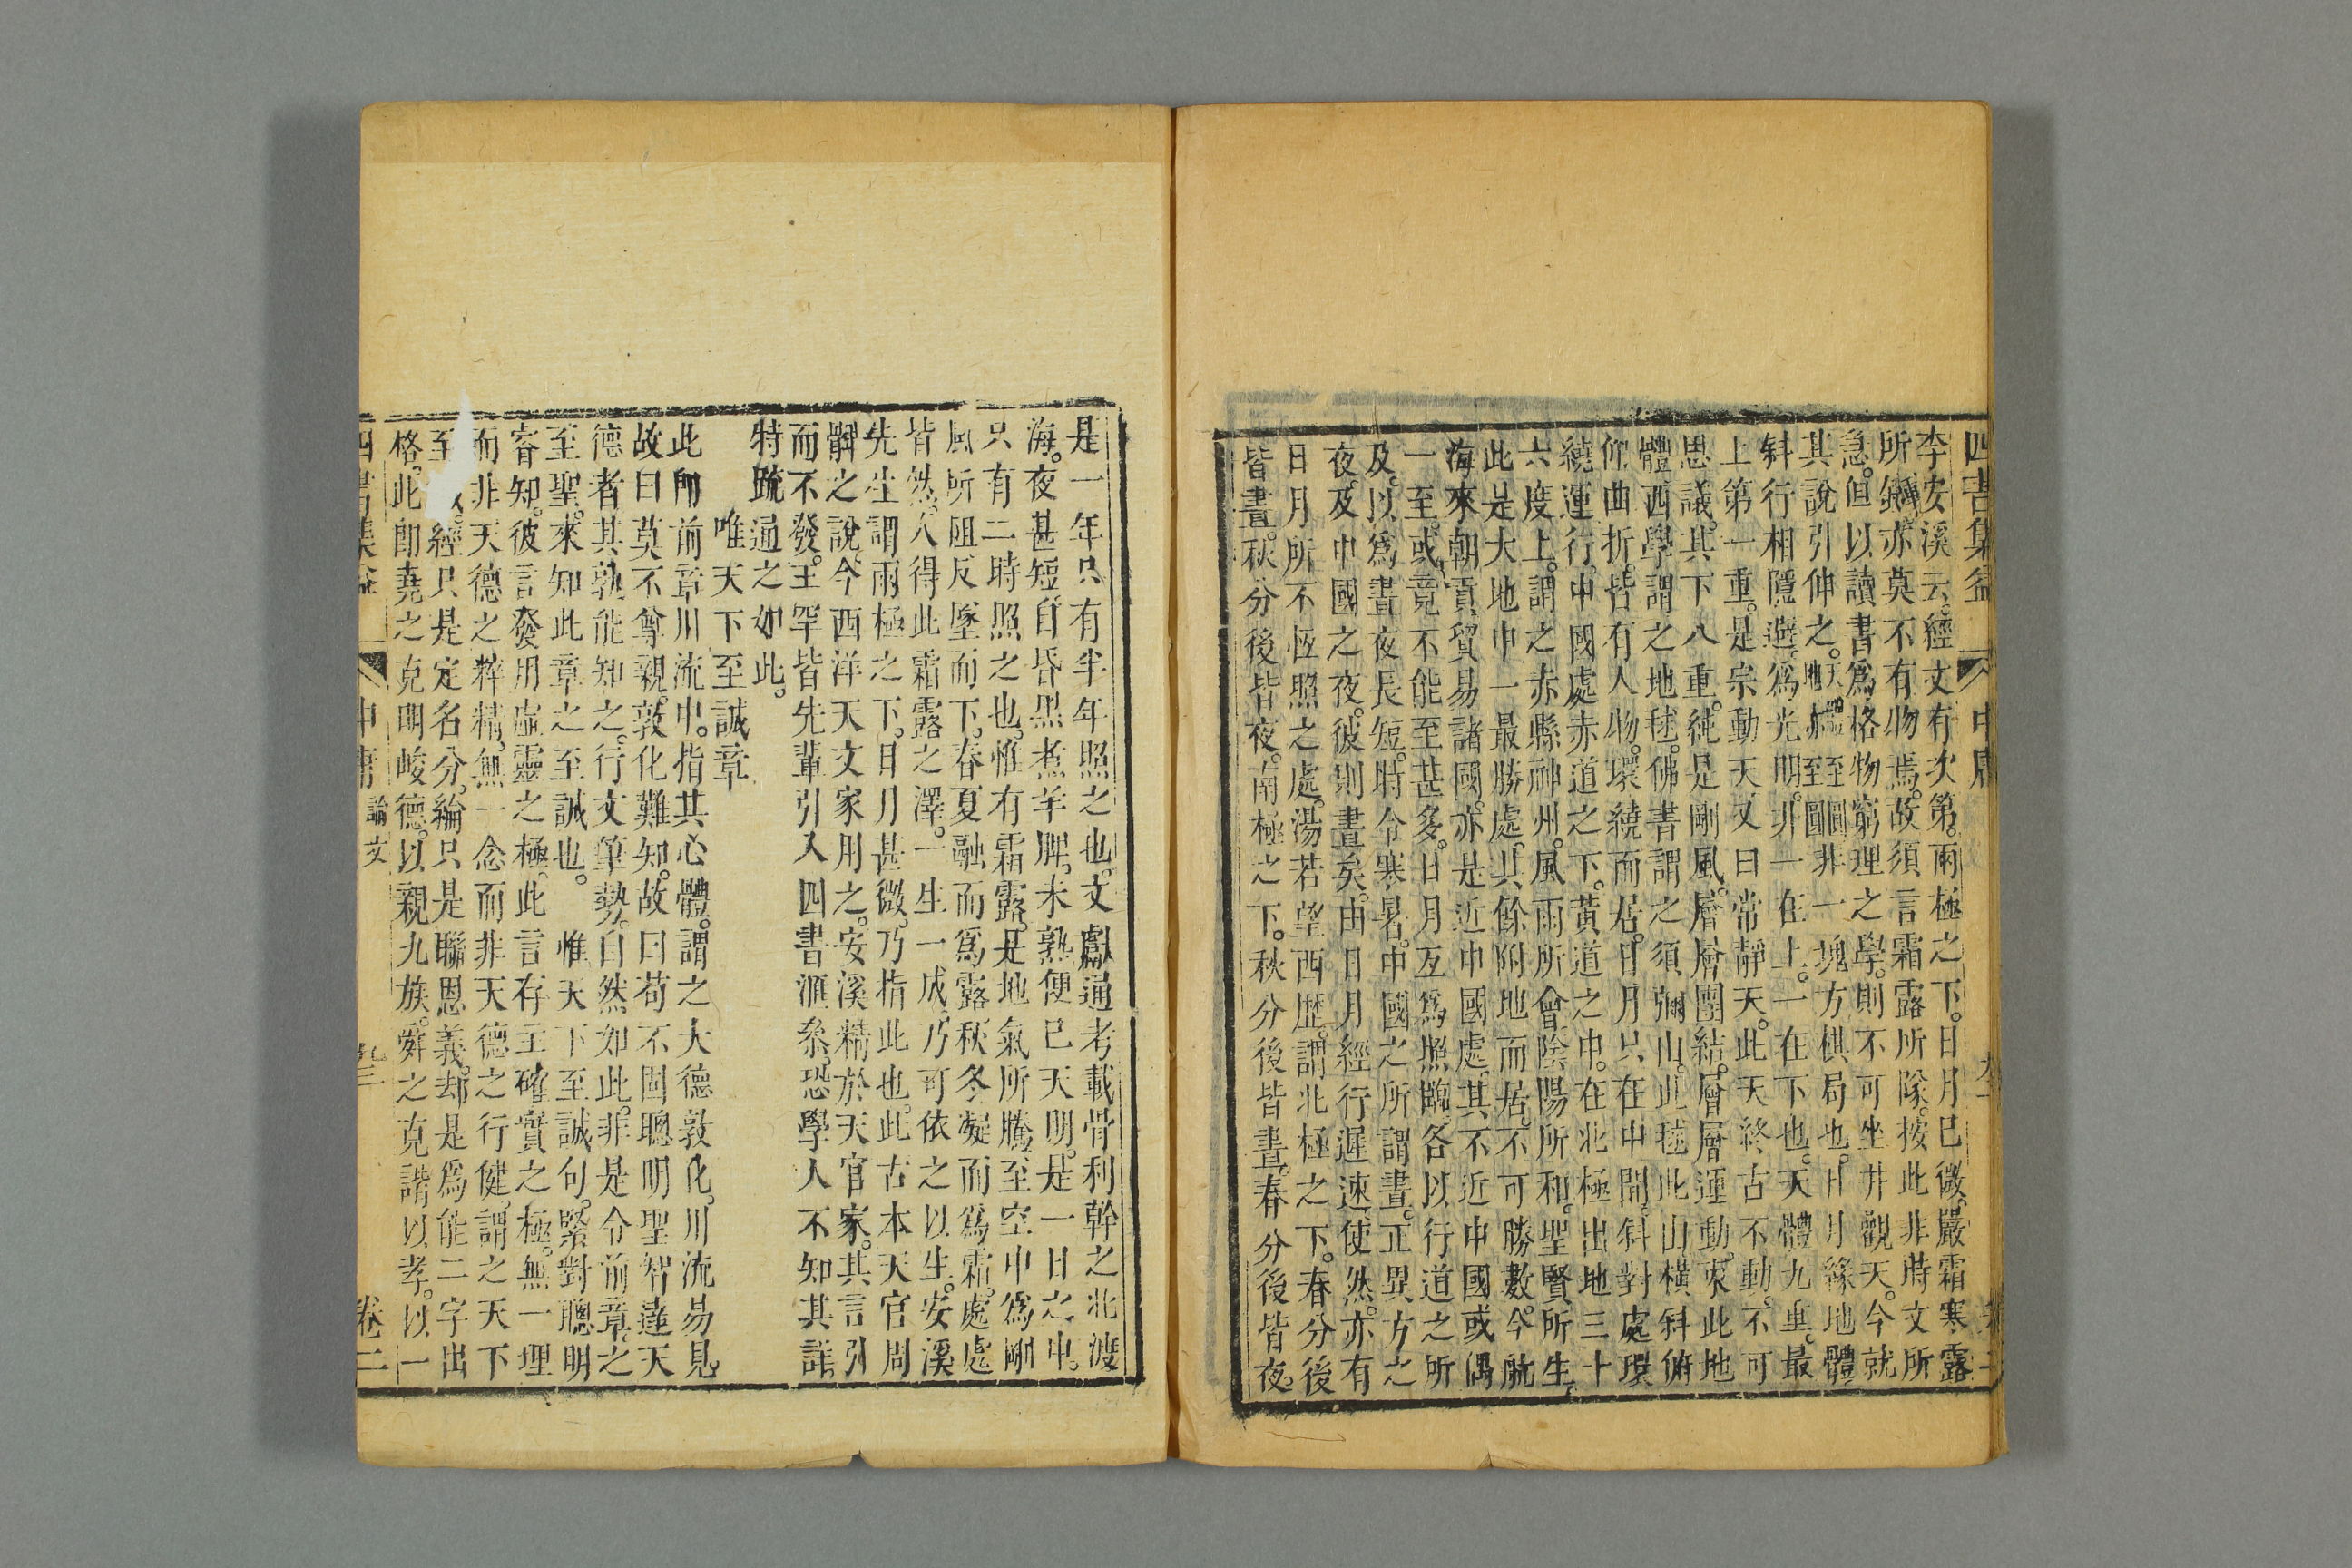 四書集益 中庸 卷二
李安溪云。經文有次第。兩極之下。日月已微。嚴霜寒露
所鍾。亦莫不有物焉。故須言霜露所隊。按此非時文所
急。但以讀書爲格物窮理之學。則不可坐井觀天。今就
其說引伸之。天體至圓地亦至圓非一塊方棋局也。日月緣地體
斜行相隱避。爲光明。非一在上。一在下也。天體九重。最
上第一重。是宗動天。又曰常靜天。此天終古不動。不可
思議。其下八重。純是剛風。層層團結。層層運動。束此地
體。西學謂之地毬。佛書謂之須彌山。此毬此山橫斜俯
仰曲折。皆有人物。環繞而居。日月只在中間。斜對處環
繞運行。中國處赤道之下。黃道之中。在北極出地三十
六度上。謂之赤縣神州。風雨所會。陰陽所和。聖賢所生。
此是大地中一最勝處。其餘附地而居。不可勝數。今航
海來朝貢貿易諸國。亦是近中國處。其不近中國或偶
一至。或竟不能至甚多。日月互爲照臨。各以行道之所
及。以爲晝夜長短。時令寒暑。中國之所謂晝。正異方之
夜。及中國之夜。彼則晝矣。由日月經行遲速使然。亦有
日月所不恆照之處。湯若望西歷。謂北極之下。春分後
皆晝。秋分後皆夜。南極之下。秋分後皆晝。春分後皆夜。
是一年只有半年照之也。文獻通考載骨利幹之北渡
海。夜甚短。自昏黑煮羊脾。未熟便已天明。是一日之中。
只有二時照之也。惟有霜露。是地氣所騰。至空中爲剛
風所阻。反墜而下。春夏融而爲露。秋冬凝而爲霜。處處
皆然。人得此霜露之澤。一生一成。乃可依之以生。安溪
先生謂兩極之下。日月甚微。乃指此也。此古本天官周
髀之說。今西洋天文家用之。安溪精於天官家。其言引
而不發。王罕皆先輩引入四書滙叅。恐學人不知其詳
特疏通之如此。
唯天下至誠章
此卽前章川流中。指其心體。謂之大德敦化。川流易見
故曰莫不尊親。敦化難知。故曰苟不固聰明聖智達天
德者其孰能知之。行文筆勢。自然如此。非是令前章之
至聖。來知此章之至誠也。 惟天下至誠句。緊對聰明
睿知。彼言發用虛靈之極。此言存主確實之極。無一理
而非天德之粹精。無一念而非天德之行健。謂之天下
至 經只是定名分。綸只是聯恩義。却是爲能二字出
格。此卽堯之克明峻德。以親九族。舜之克諧以孝。以一
四書集益 中庸 論文 九三 卷二